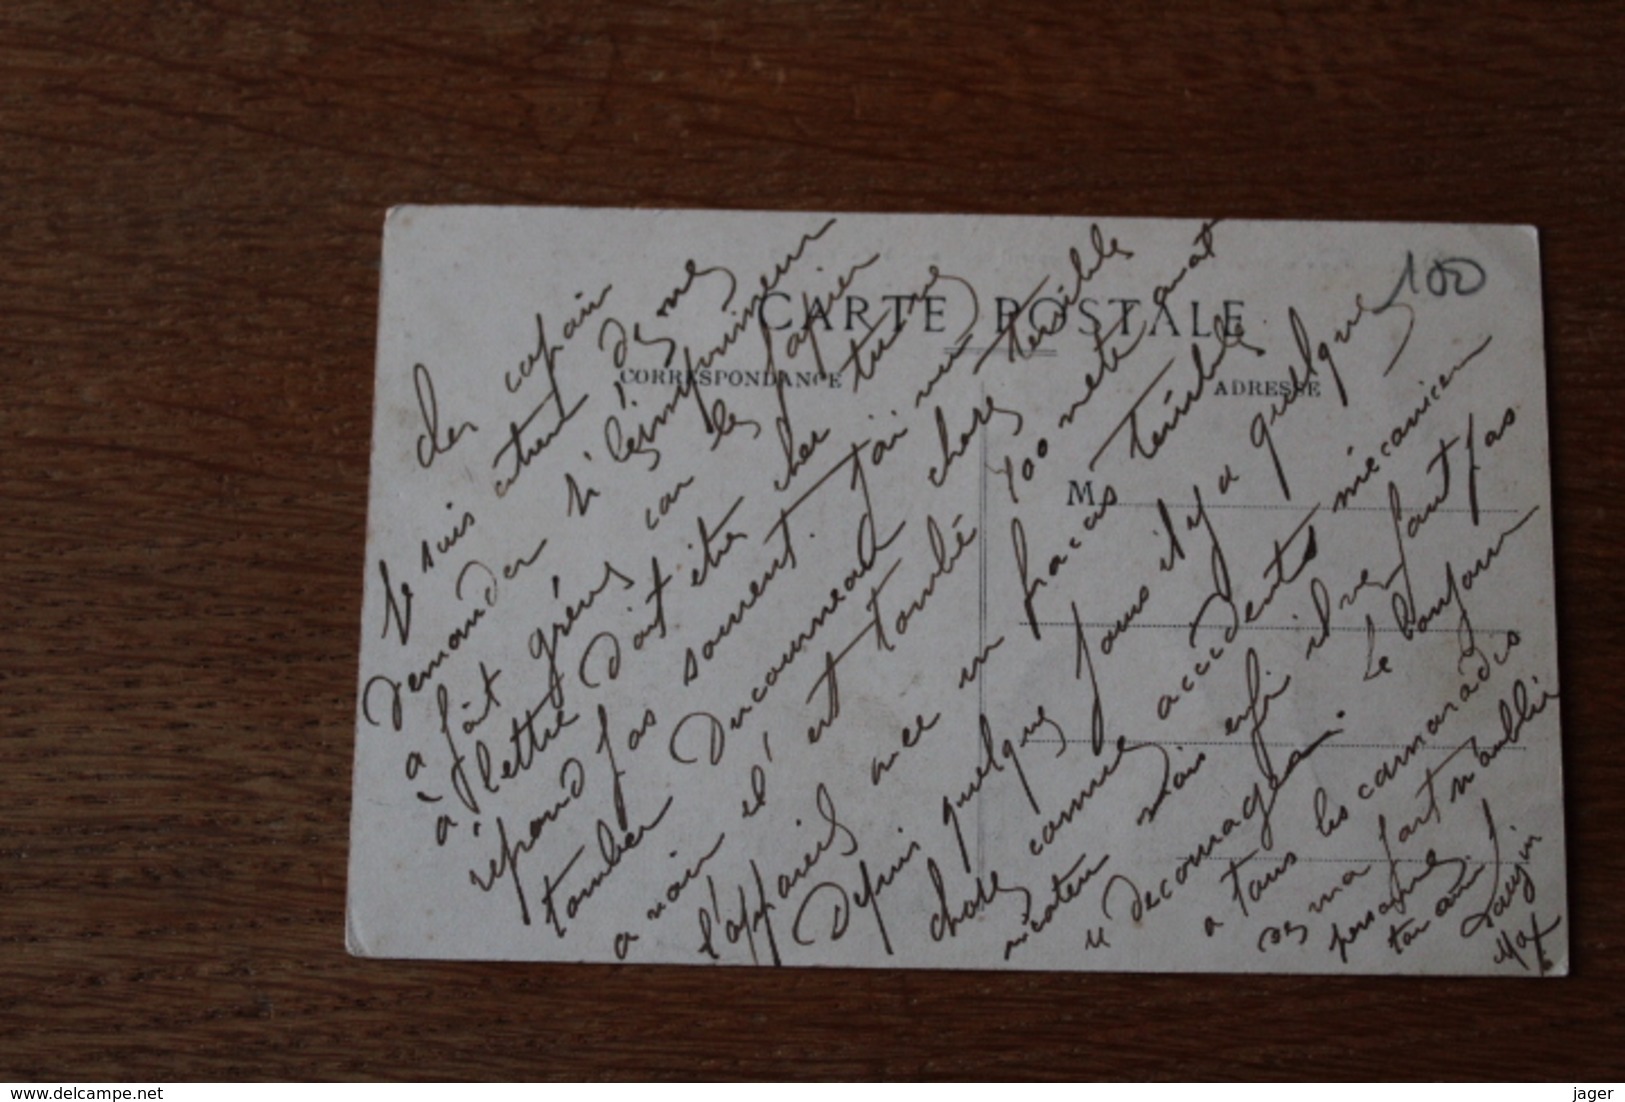 CARTE POSTALE
CORRESPONDANCE
ADRESSE
M
100
cher copain
Je suis atend des mes
demander si les imprimeur
à fait grêve car les papier
à lettre doit être cher tu ne
répond pas souvent. J'ai vu
tomber Ducourneau chose terible
a voir il est tombé 100 mètr avat
l'appareil avec un fracas terible
Depuis quelque jours il y a quelque
chose comme accidents mécanicen
mais enfi il ne faut pas
ce decourager. Le bonjour
a tous les camaradis
de ma part n'oublié
personne
ton ami
Max
jager